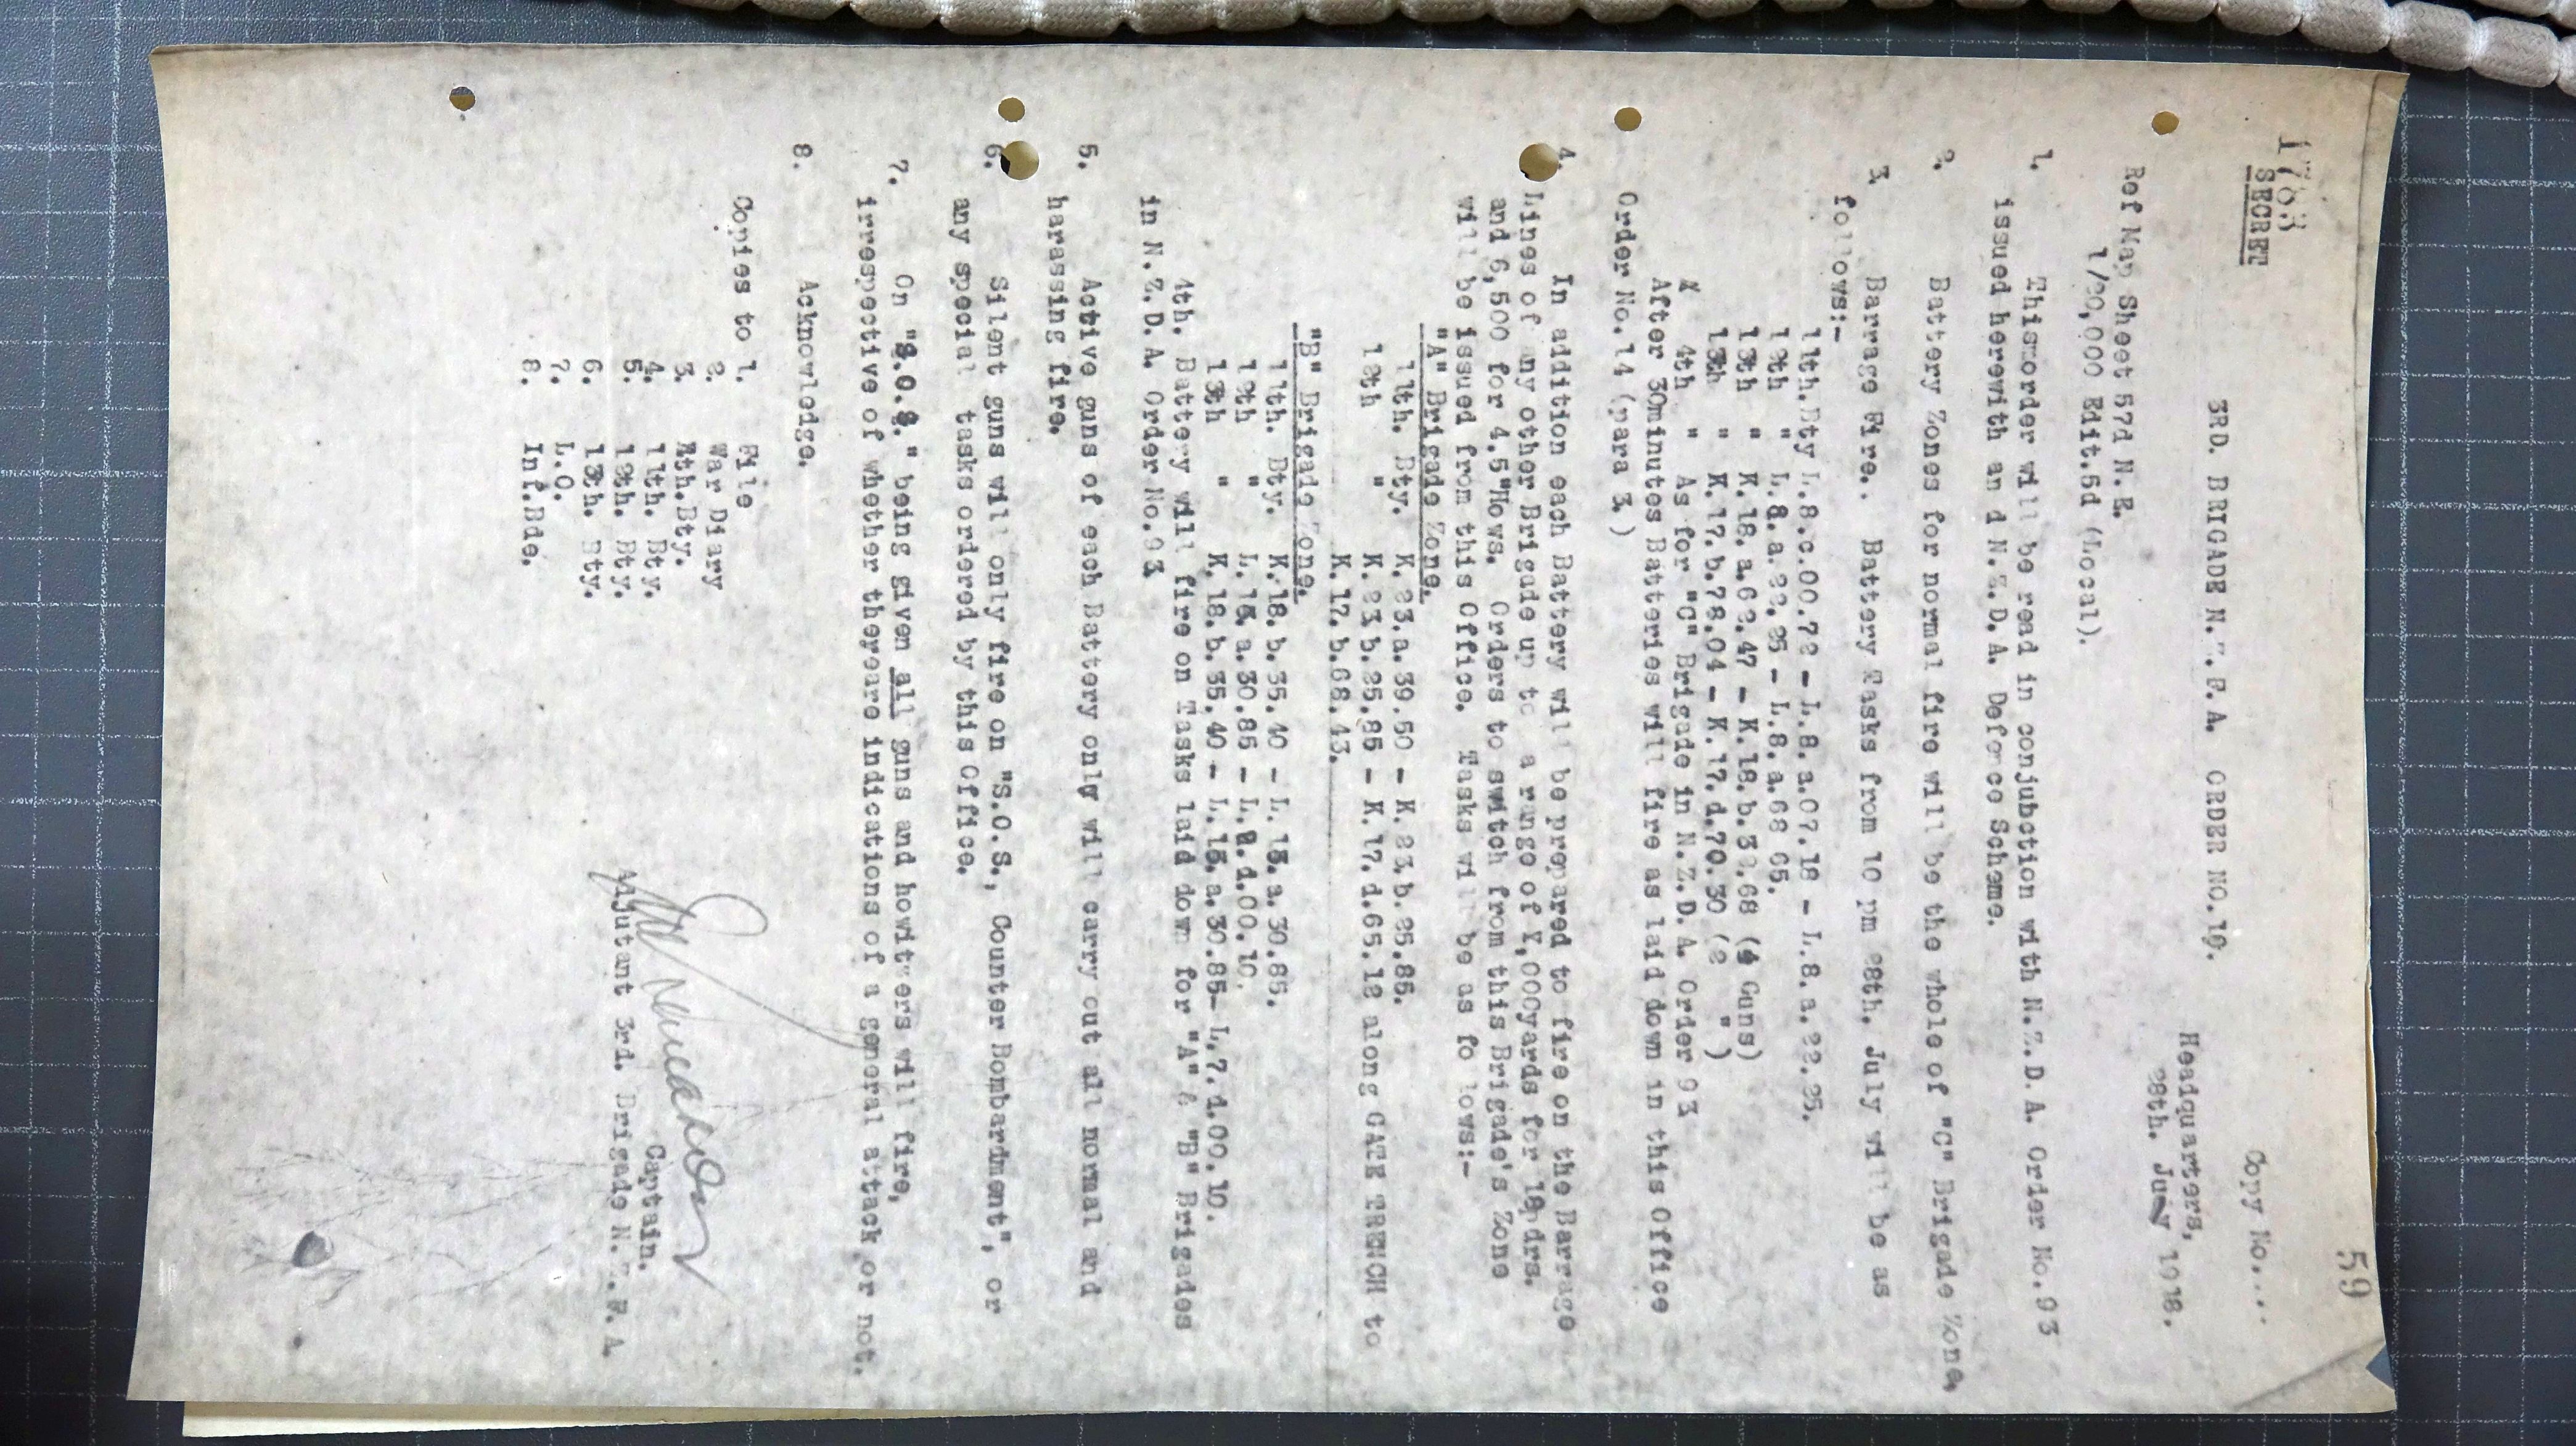 59
1783
SECRET
Copy No....
3RD. BRIGADE N.Z.F.A. ORDER NO.19.
Headquarters,
28th. July 1918.
Ref Map Sheet 57d N.E.
1/20,000 Edit.5d (Local).
1. Thismorder will be read in conjubction with N.Z.D.A. Order No.93
issued herewith an d N.Z.D.A. Defence Scheme.
2. Battery Zones for normal fire will be the whole of "C" Brigade Zone,
3. Barrage Fire.. Battery Tasks from 10 pm 28th. July will be as
follows:-
11th.Bty L.8.c.00.72 - L.8.a.07.18 - L.8.a.22.25.
12th " L.8.a.22.25 - L.8.a.68 65.
13th " K.18.a.62.47 - K.18.b.32.68 (4 Guns)
13th " K.17.b.78.04 - K.17.d.70.30 (2 " )
4th " As for "C" Brigade in N.Z.D.A. Order 93
After 30minutes Batteries will fire as laid down in this Office
Order No.14 (para 3.)
4. In addition each Battery will be prepared to fire on the Barrage
Lines of any other Brigade up to a range of ,000yards for 18pdrs.
and 6,500 for 4.5"Hows. Orders to switch from this Brigade's Zone
will be issued from this Office. Tasks will be as fo lows:-
"A" Brigade Zone.
11th. Bty. K.23.a.39.50 - K.23.b.25.85.
12th " K.23.b.25.85 - K.17.d.65.18 along GATE TRENCH to
K.17.b.68.43.
"B" Brigade Zone.
11th. Bty. K.18.b.35.40 - L.13.a.30.85.
12th " L.13.a.30.85 - L. .d.00.10.
13th " K.18.b.35.40 - L.13.a.30.85- L.7.d.00.10.
4th. Battery will fire on Tasks laid down for "A" & "B" Brigades
in N.Z.D.A. Order No.93
5. Active guns of each Battery only will carry out all normal and
harassing fire.
6. Silent guns will only fire on "S.O.S., Counter Bombardment", or
any special tasks ordered by this Office.
7. On "S.O.S." being given all guns and howitzers will fire,
irrespective of whether thereare indications of a general attack or not.
8. Acknowledge.
Captain.
Adjutant 3rd. Brigade N.Z.F.A.
Copies to 1. File
2. War Diary
3. 4th.Bty.
4. 11th. Bty.
5. 12th. Bty.
6. 13th. Bty.
7. L.O.
8. Inf.Bde.